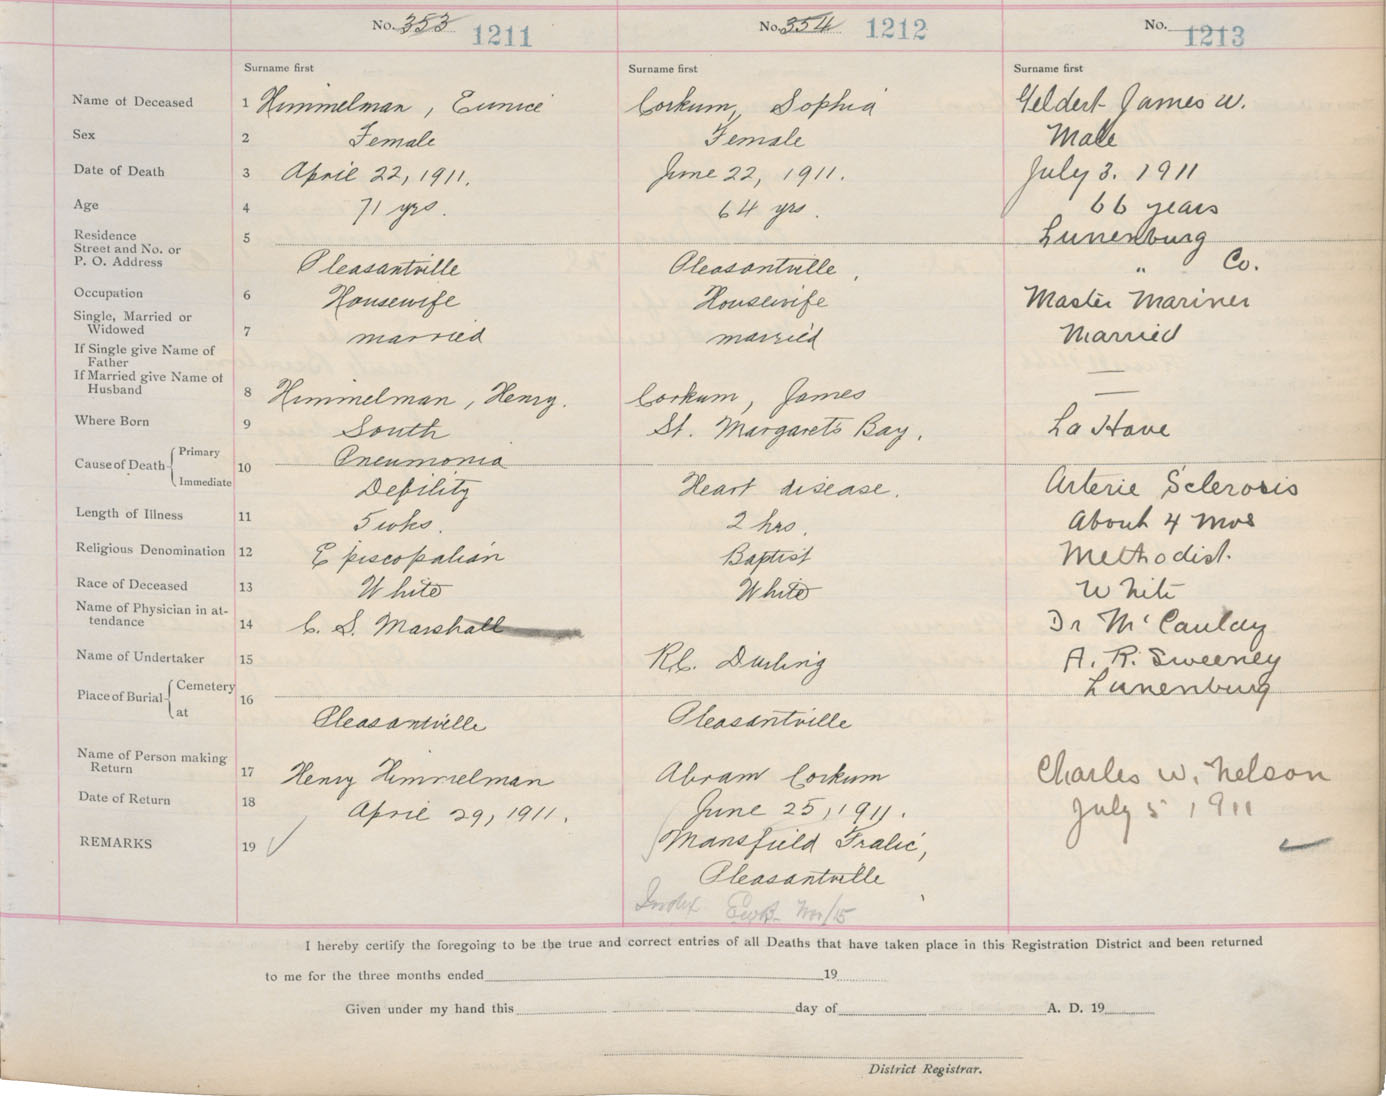 No. 353 1211 No. 354 1212 No. 1213
Surname first Surname first Surname first
Name of Deceased 1 Himmelman, Eunice Corkum, Sophia Geldert James W.
Sex 2 Female Female Male
Date of Death 3 April 22, 1911. June 22, 1911. July 3. 1911
Age 4 71 yrs. 64 yrs. 66 years
Residence 5 Lunenburg
Street and No. or
P. O. Address Pleasantville Pleasantville, " Co.
Occupation 6 Housewife Housewife Master Mariner
Single, Married or
Widowed 7 married married Married
If Single give Name of
Father —
If Married give Name of
Husband 8 Himmelman, Henry. Corkum, James —
Where Born 9 South St. Margarets Bay. La Have
Cause of Death Primary 10 Pneumonia
Immediate Debility Heart disease. Arterie Sclerosis
Length of Illness 11 5 wks. 2 hrs. About 4 Mos
Religious Denomination 12 Episcopalian Baptist Methodist.
Race of Deceased 13 White White White
Name of Physician in at-
tendance 14 C. S. Marshall Dr McCaulay
Name of Undertaker 15 R.C. Durling A. R. Sweeney
Place of Burial Cemetery 16 Lunenburg
at Pleasantville Pleasantville
Name of Person making
Return 17 Henry Himmelman Abram Corkum Charles W. Nelson
Date of Return 18 April 29, 1911. June 25, 1911. July 5 1911
REMARKS 19 Mansfield Fralic,
Pleasantville
Index Nov/15
I hereby certify the foregoing to be the true and correct entries of all Deaths that have taken place in this Registration District and been returned
to me for the three months ended 19
Given under my hand this day of A. D. 19
District Registrar.